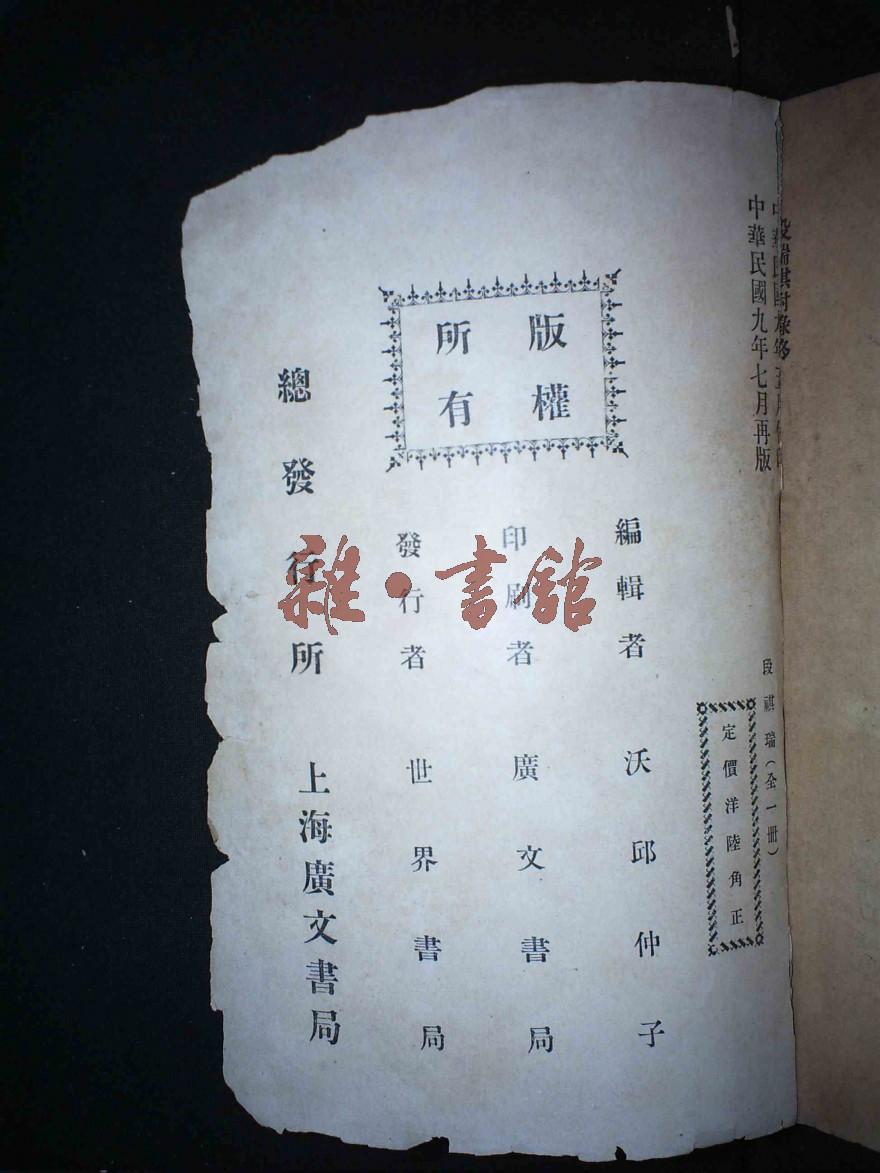 中華民國九年七月再版
段祺瑞（全一冊）
定價洋陸角正
版權
所有
編輯者 沃邱仲子
印刷者 廣文書局
發行者 世界書局
總發行所 上海廣文書局
雜·書館